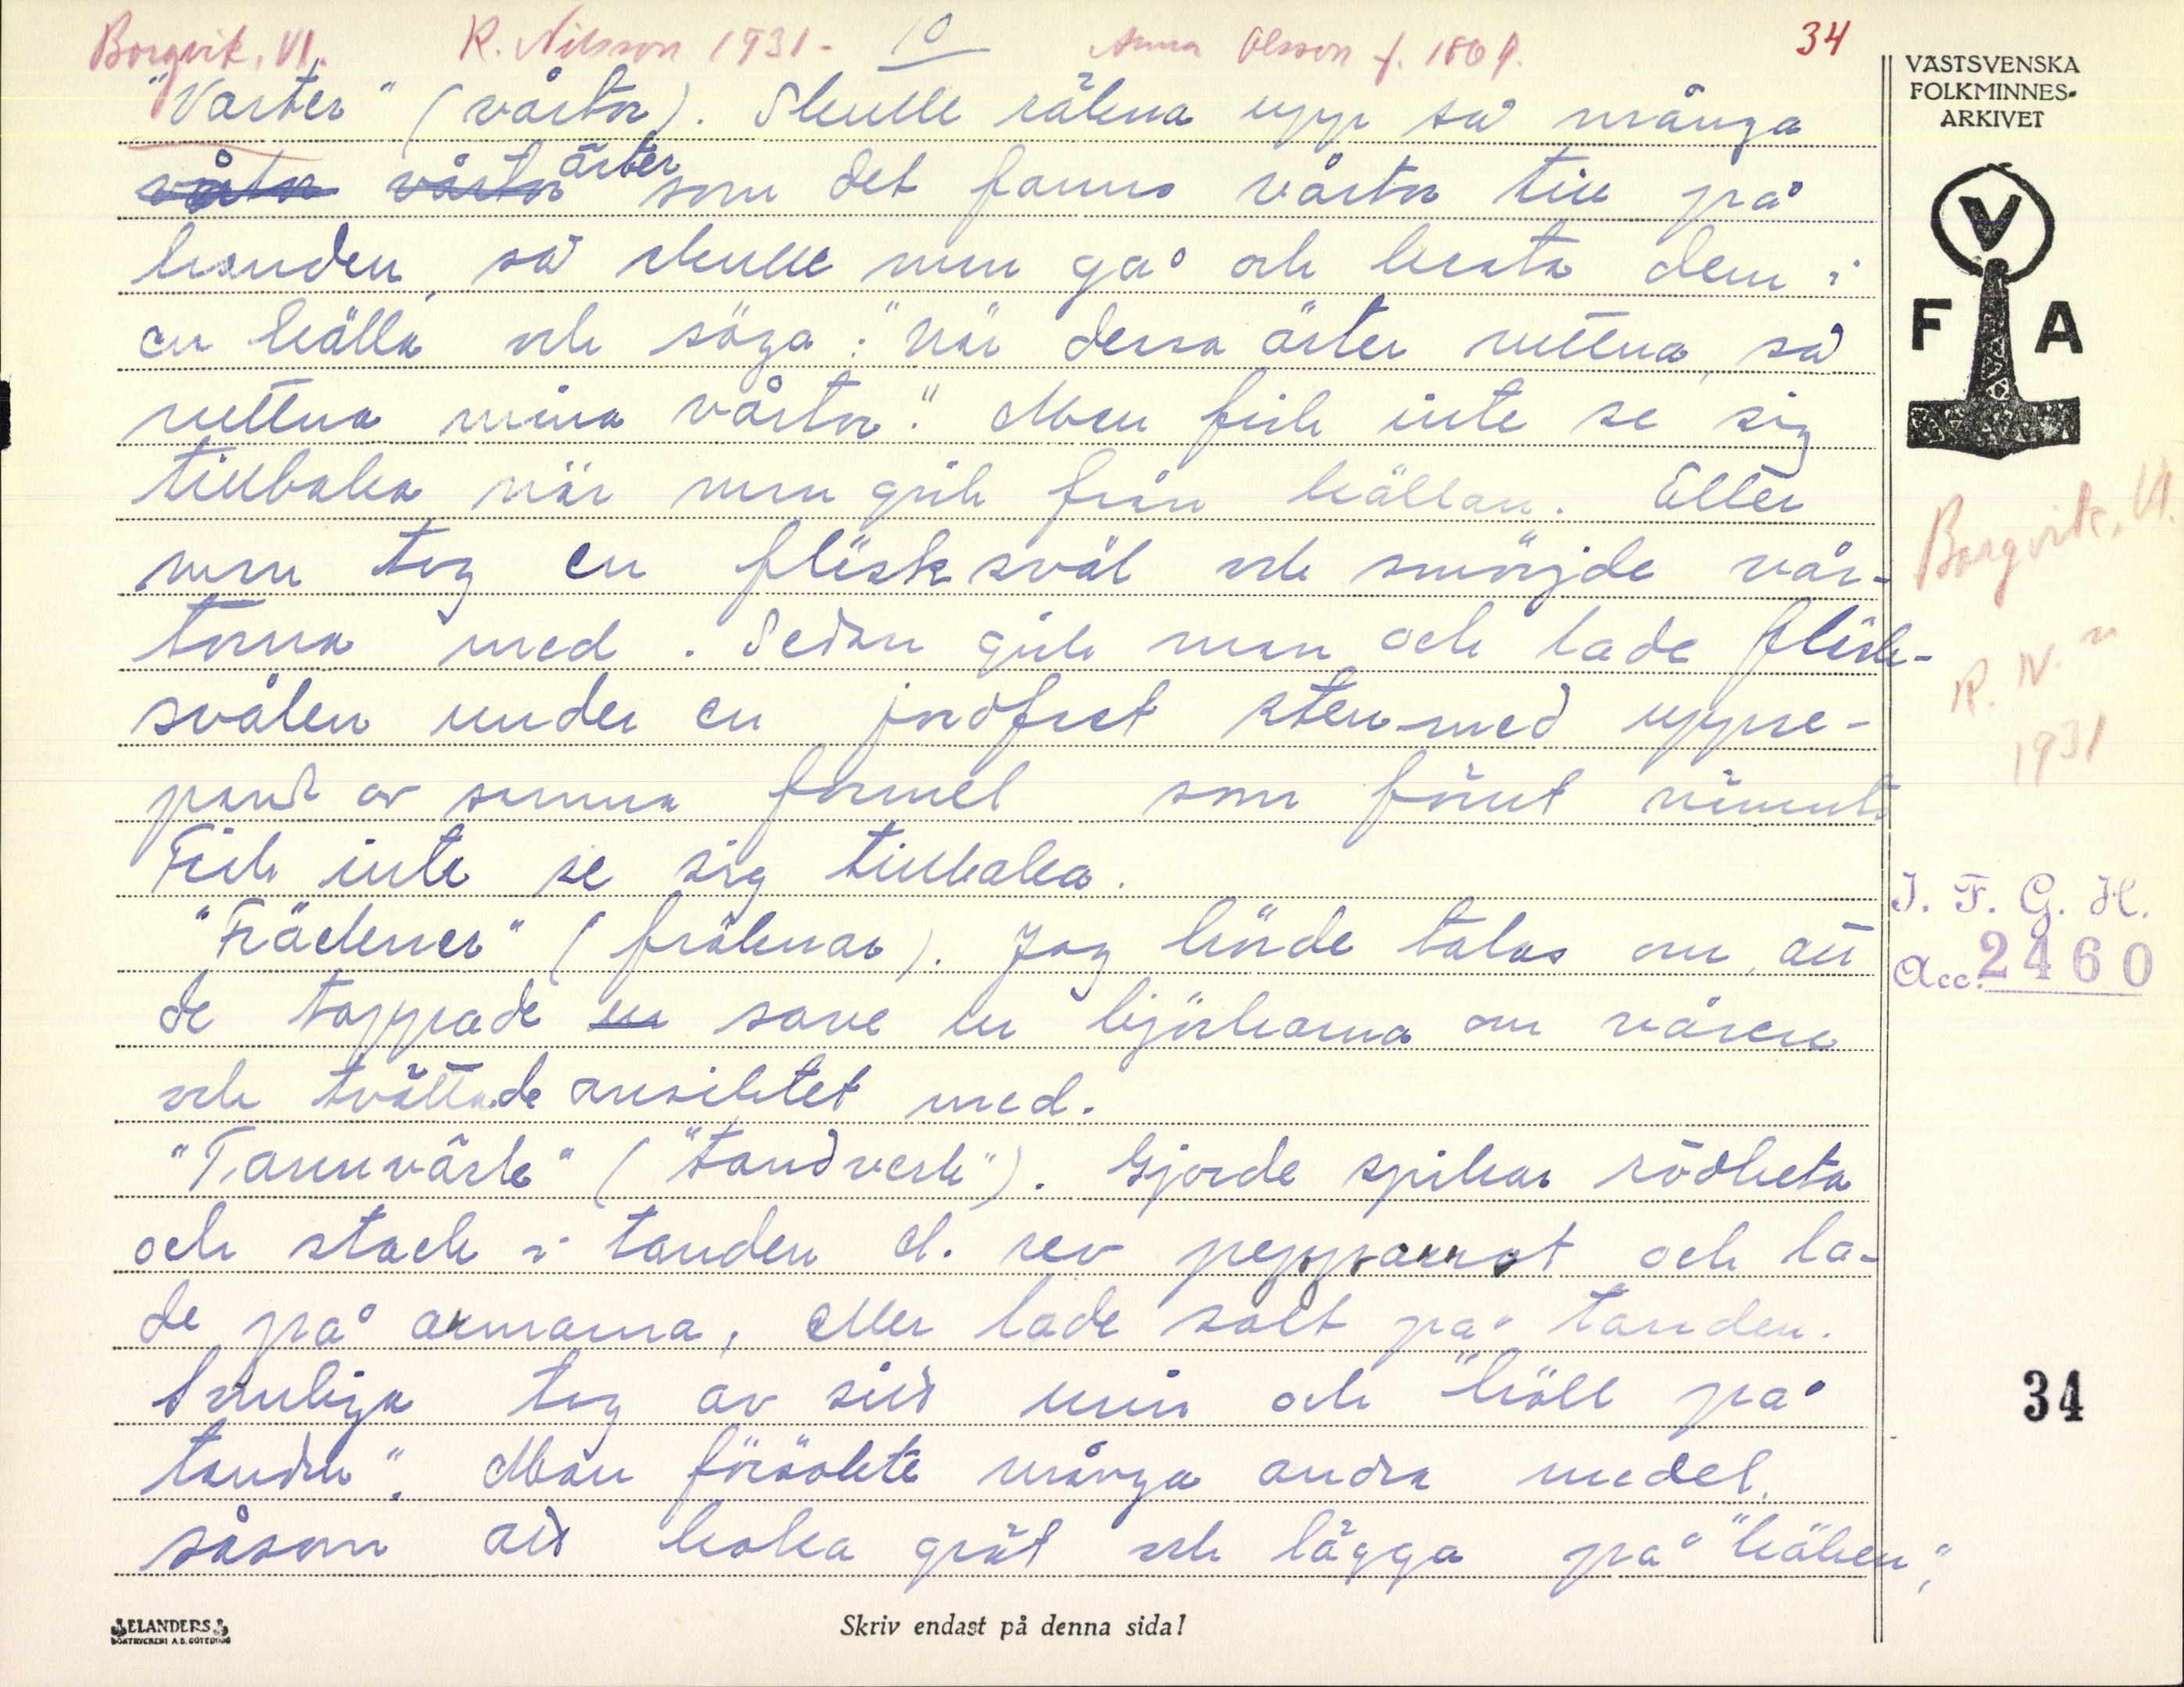 Borgvik, Vl. R. Nilsson 1931. 10 Anna Olsson f. 1869. 34
VÄSTSVENSKA
FOLKMINNES-
ARKIVET
"Varter" (vårtor). Skulle räkna upp så många
vårtor vårtor ärter som det fanns vårtor till på
handen, så skulle man gå och kasta dem i
en källa och säga: "När dessa ärter ruttna, så
ruttna mina vårtor." Man fick inte se sig
tillbaka när man gick från källan. Eller
man tog en fläsksvål och smörjde vår-
torna med. Sedan gick man och lade fläsk-
svålen under en jordfast sten med uppre-
pand av samma formel som förut nämnts
Fick inte se sig tillbaka.
"Fräckner" (fräknar). Jag hörde talas om, att
de tappade ur save ur björkarna om våren
och tvättade ansiktet med.
"Tannvärk" ("tandverk"). Gjorde spikar rödheta
och stack i tanden el. rev pepparrot och la-
de på armarna, eller lade salt på tanden.
Smuliga tog av sitt urin och "höll på
tanden". Man försökte många andra medel,
såsom att koka gröt och lägga på "käken",
F V A
Borgvik, Vl.
R. N-n
1931
I. F. G. H.
Acc. 2460
34
ELANDERS
BOKTRYCKERI A.B. GÖTEBORG
Skriv endast på denna sida!